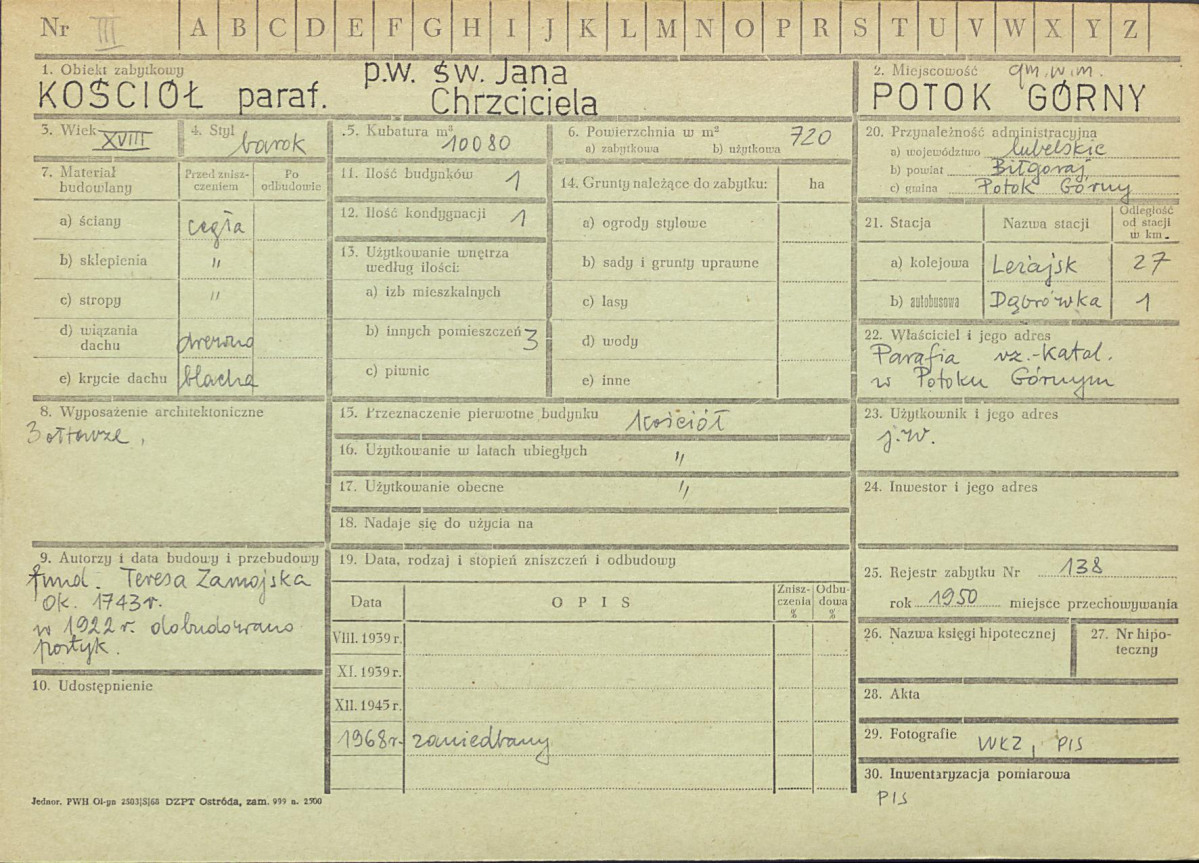 Nr III A B C D E F G H I J K L M N O P R S T U V W X Y Z
1. Obiekt zabytkowy
KOŚCIÓŁ paraf. p.w. św. Jana
Chrzciciela
2. Miejscowość gm. w m.
POTOK GÓRNY
3. Wiek XVIII
4. Styl barok
5. Kubatura m³ 10080
6. Powierzchnia w m² 720
a) zabytkowa b) użytkowa
7. Materiał budowlany
Przed zniszczeniem
Po odbudowie
a) ściany cegła
b) sklepienia "
c) stropy "
d) wiązania dachu drewno
e) krycie dachu blacha
8. Wyposażenie architektoniczne
3 ołtarze,
9. Autorzy i data budowy i przebudowy
fund. Teresa Zamojska
ok. 1743 r.
w 1922 r. dobudowano
portyk.
10. Udostępnienie
11. Ilość budynków 1
12. Ilość kondygnacji 1
13. Użytkowanie wnętrza
według ilości:
a) izb mieszkalnych
b) innych pomieszczeń 3
c) piwnic
14. Grunty należące do zabytku: ha
a) ogrody stylowe
b) sady i grunty uprawne
c) lasy
d) wody
e) inne
15. Przeznaczenie pierwotne budynku kościół
16. Użytkowanie w latach ubiegłych "
17. Użytkowanie obecne "
18. Nadaje się do użycia na
19. Data, rodzaj i stopień zniszczeń i odbudowy
Data OPIS Zniszczenia % Odbudowa %
VIII. 1939 r.
XI. 1939 r.
XII. 1945 r.
1968 r. zaniedbany
20. Przynależność administracyjna
a) województwo lubelskie
b) powiat Biłgoraj
c) gmina Potok Górny
21. Stacja Nazwa stacji Odległość od stacji w km.
a) kolejowa Leżajsk 27
b) autobusowa Dąbrówka 1
22. Właściciel i jego adres
Parafia rz.-katol.
w Potoku Górnym
23. Użytkownik i jego adres
j.w.
24. Inwestor i jego adres
25. Rejestr zabytku Nr 138
rok 1950 miejsce przechowywania
26. Nazwa księgi hipotecznej
27. Nr hipoteczny
28. Akta
29. Fotografie WKZ, PIS
30. Inwentaryzacja pomiarowa
PIS
Jednor. PWH Ol-yn 2503|S|68 DZPT Ostróda, zam. 999 n. 2500